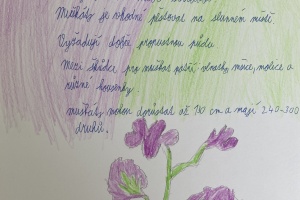 Muškáty je vhodné pěstovat na slunném místě.
Vyžadují dobře propustnou půdu
Mezi škůdce pro muškát patří mšice, molice a
různé housenky
muškáty mohou dorůstat až 130 cm a mají 240-300
druhů.